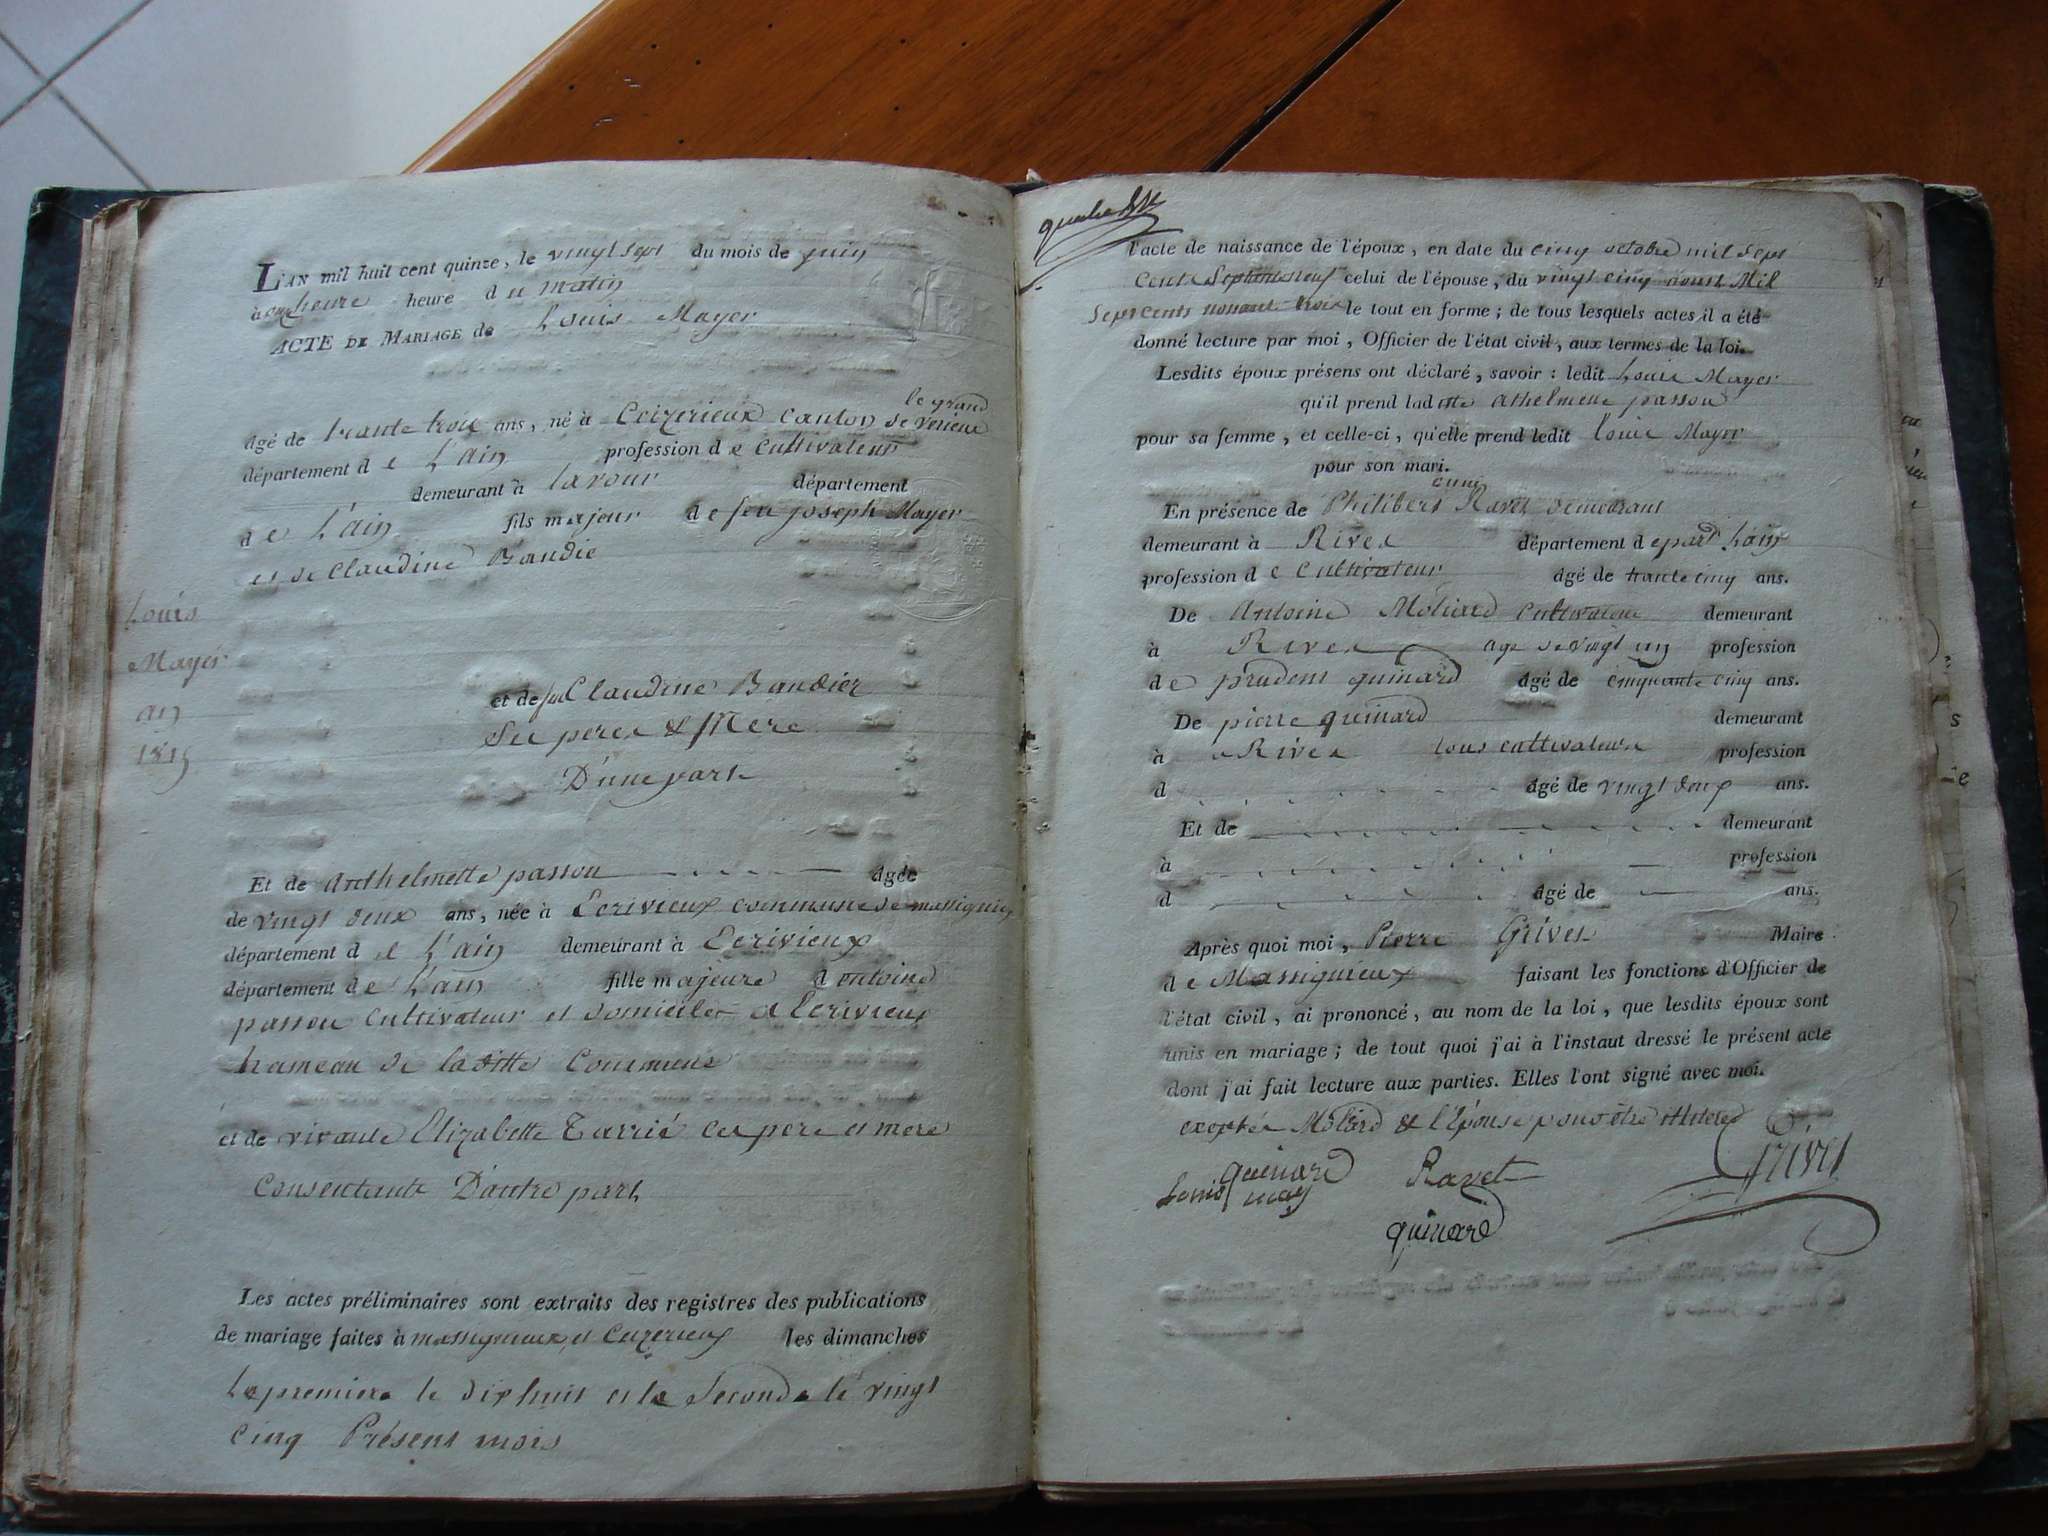 L'AN mil huit cent quinze, le vingt sept du mois de juin
à heure du matin
ACTE DE MARIAGE de Louis Mayer
le grand
âgé de trante trois ans, né à Ceizerieux canton de verieu
département de L'ain profession de Cultivateur
demeurant à lavour département
de L'ain fils majeur de feu joseph Mayer
et de Claudine Baudié
Louis
Mayer
an
1815
et de feu Claudine Baudier
Ses peres & Mere
D'une part
Et de Anthelmette passou âgée
de vingt deux ans, née à Ecrivieux commune de massignieu
département de L'ain demeurant à Ecrivieux
département de L'ain fille majeure d'entoine
passou Cultivateur et domicilié a Ecrivieux
hameau de laditte Commune
et de vivante Elizabette Tarrié Ces pere et mere
Consentante D'autre part
Les actes préliminaires sont extraits des registres des publications
de mariage faites à massignieux et Cuzerieux les dimanches
La premiere le dix huit et la Seconde le vingt
Cinq Présent mois
l'acte de naissance de l'époux, en date du cinq octobre mil sept
Cents Septanteneuf celui de l'épouse, du vingt cinq Mil
Sept cents nonante trois le tout en forme; de tous lesquels actes il a été
donné lecture par moi, Officier de l'état civil, aux termes de la loi.
Lesdits époux présens ont déclaré, savoir: ledit Louis Mayer
qu'il prend laditte athelmette passou
pour sa femme, et celle-ci, qu'elle prend ledit louis Mayer
pour son mari.
En présence de Philibert Ravet demeurant
demeurant à Rives département depart L'ain
profession de Cultivateur âgé de trante cinq ans.
De Antoine Moliard Cultivateur demeurant
à Rives age de vingt un profession
de prudent quinard âgé de cinquante cinq ans.
De pierre quinard demeurant
à a Rives tous cultivateurs profession
d âgé de vingt deux ans.
Et de demeurant
à profession
d âgé de ans.
Après quoi moi, Pierre Grives Maire
de Massignieux faisant les fonctions d'Officier de
l'état civil, ai prononcé, au nom de la loi, que lesdits époux sont
unis en mariage; de tout quoi j'ai à l'instaut dressé le présent acte
dont j'ai fait lecture aux parties. Elles l'ont signé avec moi.
exeptés Moliard & l'Epouse pour être
quinard Ravet Grives
Louis may
quinard